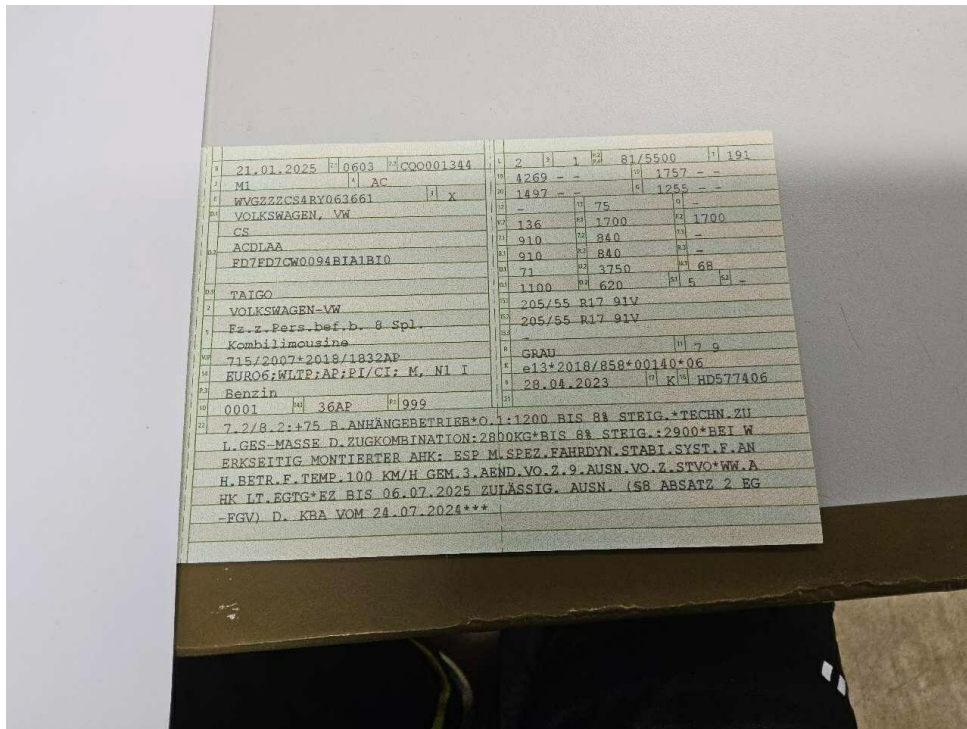 B 21.01.2025 2.1 0603 2.2 CQO001344
J M1 4 AC
E WVGZZZCS4RY063661 3 X
D.1 VOLKSWAGEN, VW
CS
D.2 ACDLAA
FD7FD7CW0094BIA1BI0
D.3 TAIGO
2 VOLKSWAGEN-VW
5 Fz.z.Pers.bef.b. 8 Spl.
Kombilimousine
V.9 715/2007*2018/1832AP
14 EURO6;WLTP;AP;PI/CI; M, N1 I
P.3 Benzin
10 0001 14.1 36AP P.1 999
L 2 9 1 P.2 P.4 81/5500 T 191
18 4269 - - 19 1757 - -
20 1497 - - G 1255 - -
12 - 13 75 Q -
V.7 136 F.1 1700 F.2 1700
7.1 910 7.2 840 7.3 -
8.1 910 8.2 840 8.3 -
U.1 71 U.2 3750 U.3 68
O.1 1100 O.2 620 S.1 5 S.2 -
15.1 205/55 R17 91V
15.2 205/55 R17 91V
15.3 -
R GRAU 11 7 9
K e13*2018/858*00140*06
6 28.04.2023 17 K 16 HD577406
21
22 7.2/8.2:+75 B.ANHÄNGEBETRIEB*O.1:1200 BIS 8% STEIG.*TECHN.ZU
L.GES-MASSE D.ZUGKOMBINATION:2800KG*BIS 8% STEIG.:2900*BEI W
ERKSEITIG MONTIERTER AHK: ESP M.SPEZ.FAHRDYN.STABI.SYST.F.AN
H.BETR.F.TEMP.100 KM/H GEM.3.AEND.VO.Z.9.AUSN.VO.Z.STVO*WW.A
HK LT.EGTG*EZ BIS 06.07.2025 ZULÄSSIG. AUSN. (§8 ABSATZ 2 EG
-FGV) D. KBA VOM 24.07.2024***